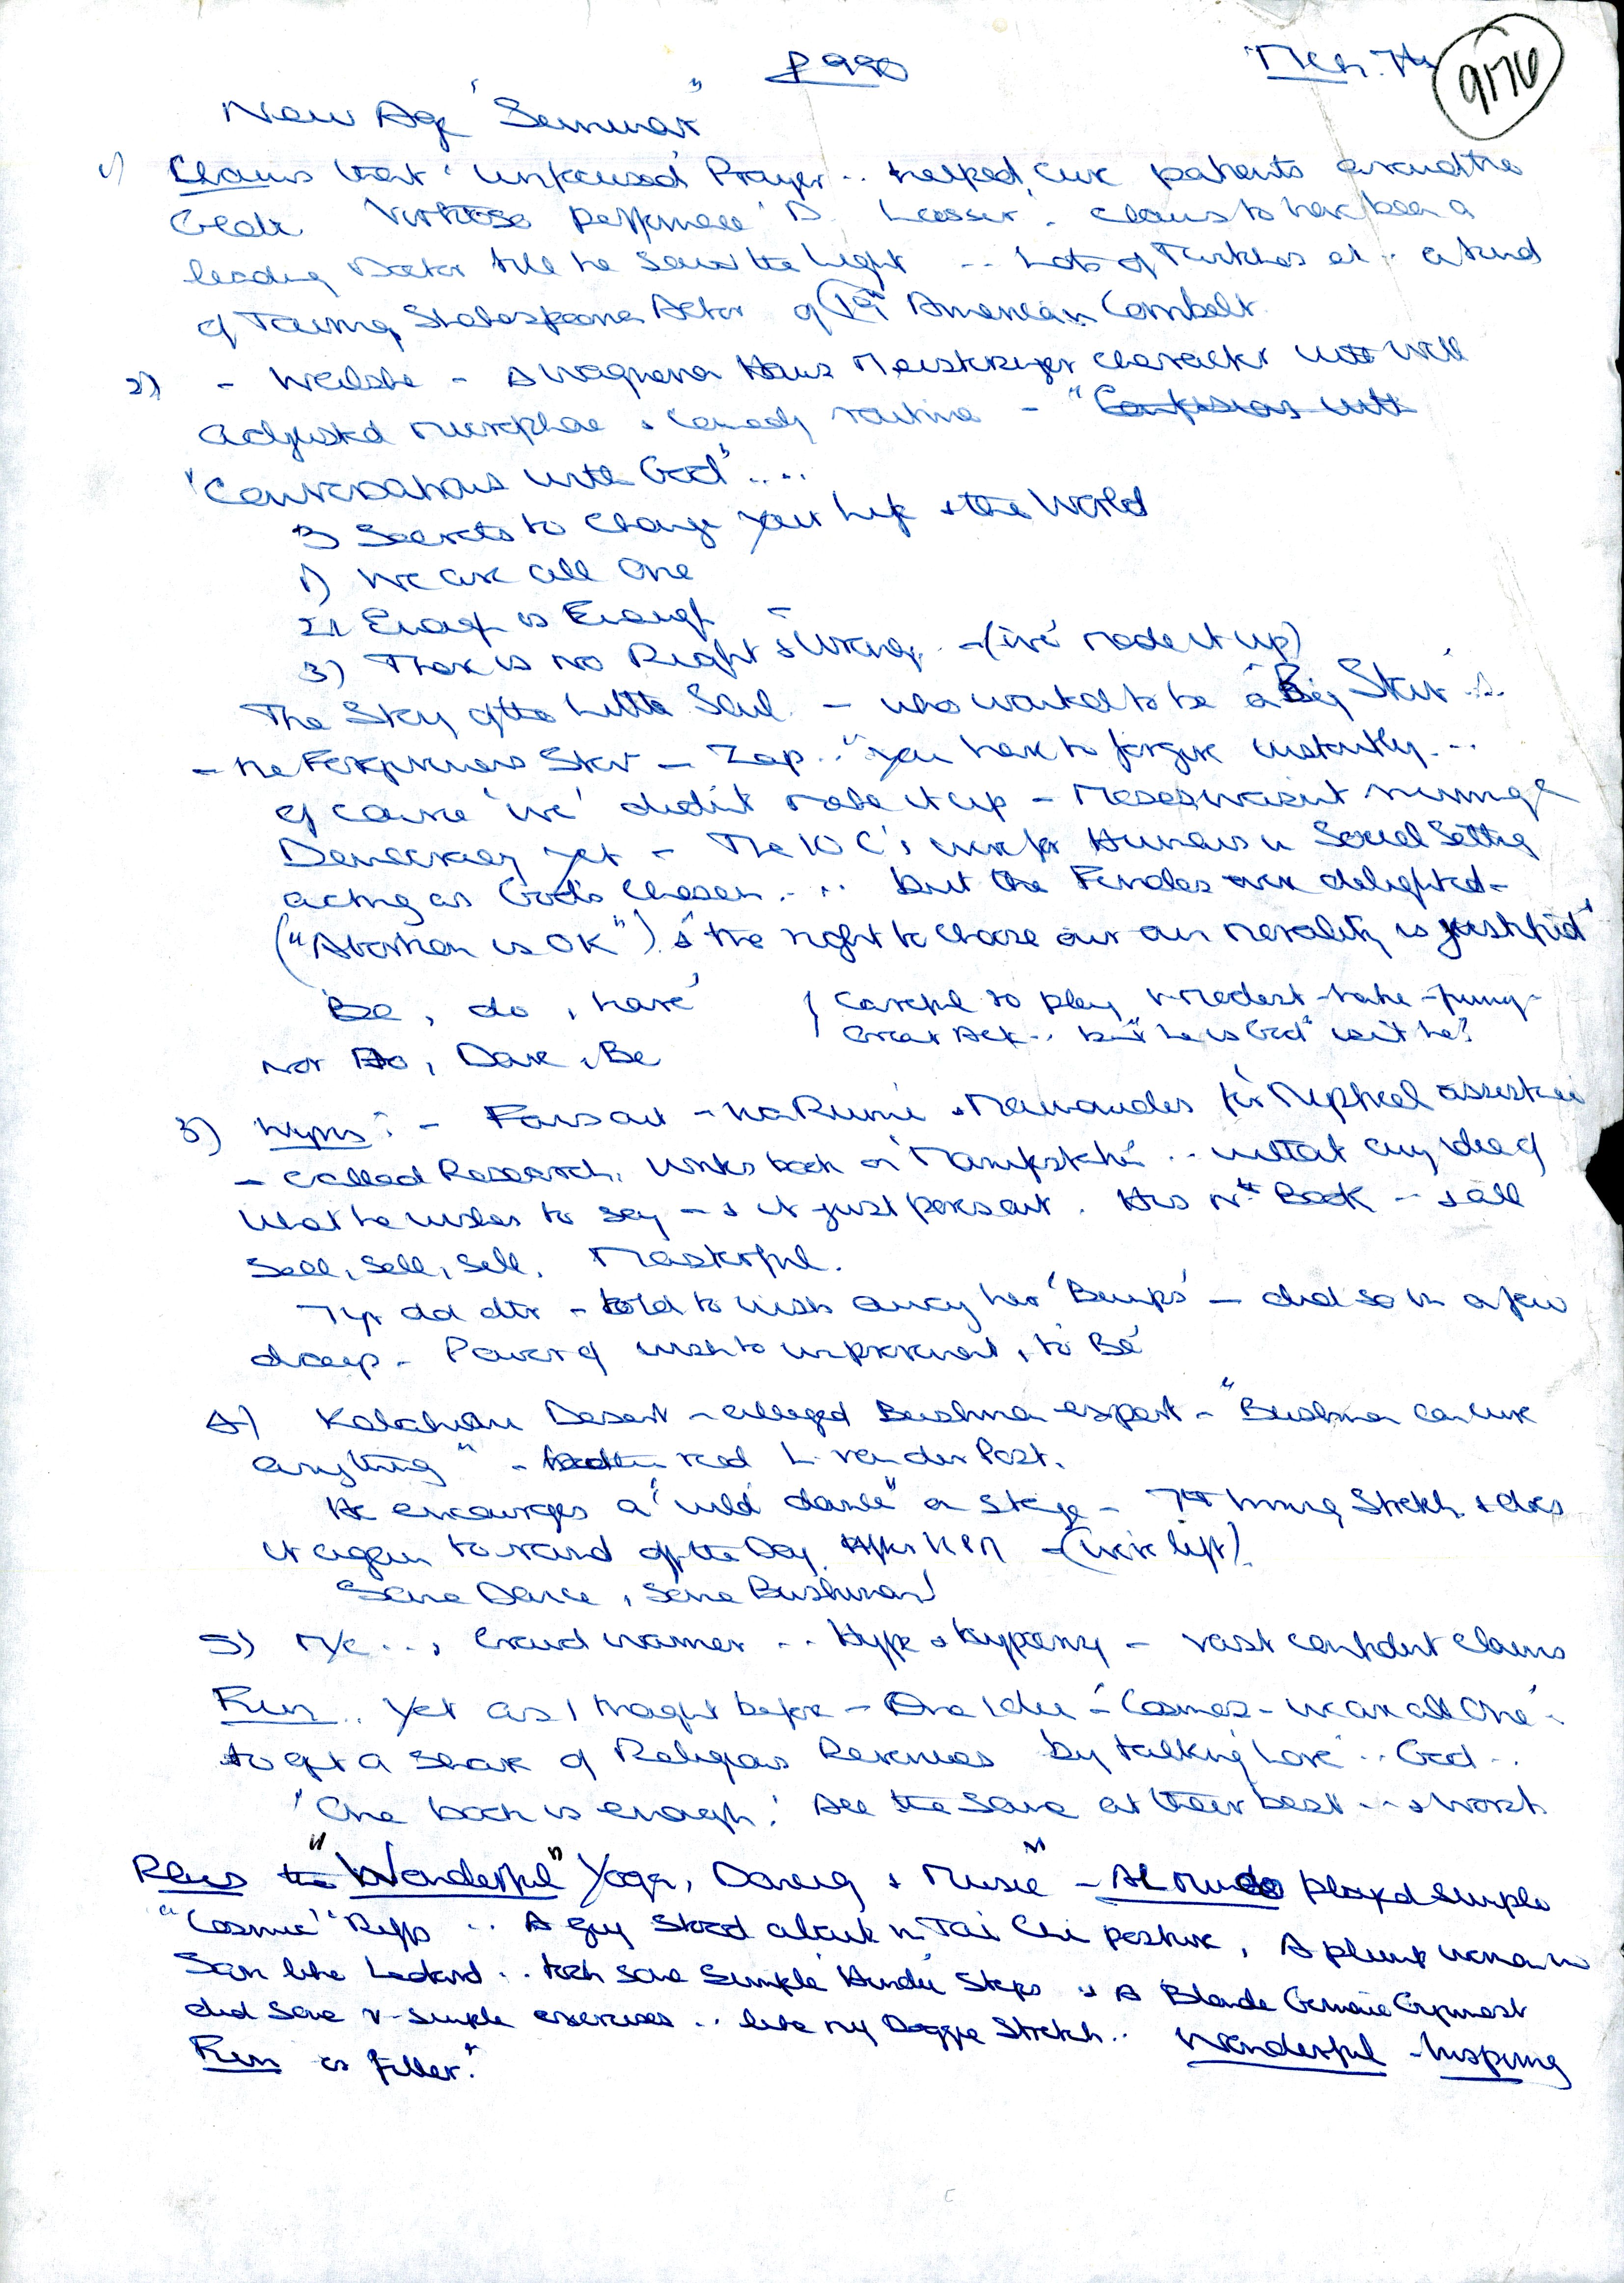 P 990 Mch. 7th 9176
New Age "Seminar"
1) Claims that 'unfocused' Prayer .. helped cure patients around the
Globe Virtuoso performance D. . claims to have been a
leading Doctor till he saw the Light .. Lots of .. a kind
of Touring Shakespearean Actor of 19th American Cornbelt
2) - Walsche - A Wagnerian Hans Meistersinger character with well
adjusted microphone & comedy routine - "Confessions with
'Conversations with God' ....
3 Secrets to change your life & the World
1) We are all One
2) Enough is Enough -
3) There is no Right & Wrong. - ('we' made it up)
The Story of the Little Soul - who wanted to be 'a Big Star' ..
- the Forgiveness Star - Zap .. "you have to forgive instantly...
of course 'we' didn't make it up - Moses wasn't running a
Democracy yet - The 10 C's were for Humans in Social Setting
acting as God's Chosen... but the Females were delighted -
("Abortion is OK") & 'the right to choose our own morality is justified'
'Be, do, have' ( Careful to play v-modest - - funny -
Not Do, Dare, Be Great Act .. but "he is God" isn't he?
3) : - Far out - & for assistance
- called Research, Writes book on 'Manifesting' .. without any idea of
what he wishes to say - & it just pours out. His Book - & all
Sell, Sell, Sell. Masterful.
7 yr old dtr - told to wish away her 'Bumps' - did so in a few
days - Power of wish to improvement, to 'Be'
4) Kalahari Desert - alleged Bushman expert - "Bushman can cure
anything" - read L. van der Post.
He encourages a 'wild dance' on stage - & does
it again to round off the Day. After 11 PM - (we've left).
Same Dance, Same Bushman!
5) M/C .., Crowd warmer .. Hype & - vast confident claims
Fun .. Yet as I thought before - One Idea - 'Cosmos - we are all One' -
to get a share of Religious Revenues by talking 'Love' .. God ..
'One book is enough'. All the same at their best ... & worst
Plus the "Wonderful" Yoga, Dancing & Music" - played simple
"Cosmic" Riffs .. A guy stood about in Tai Chi posture, A plump woman in
Sari like Leotard .. took some simple Hindu Steps & A Blonde Gymnast
did some v-simple exercises .. like my Doggie Stretch .. Wonderful - Inspiring
Fun as filler."